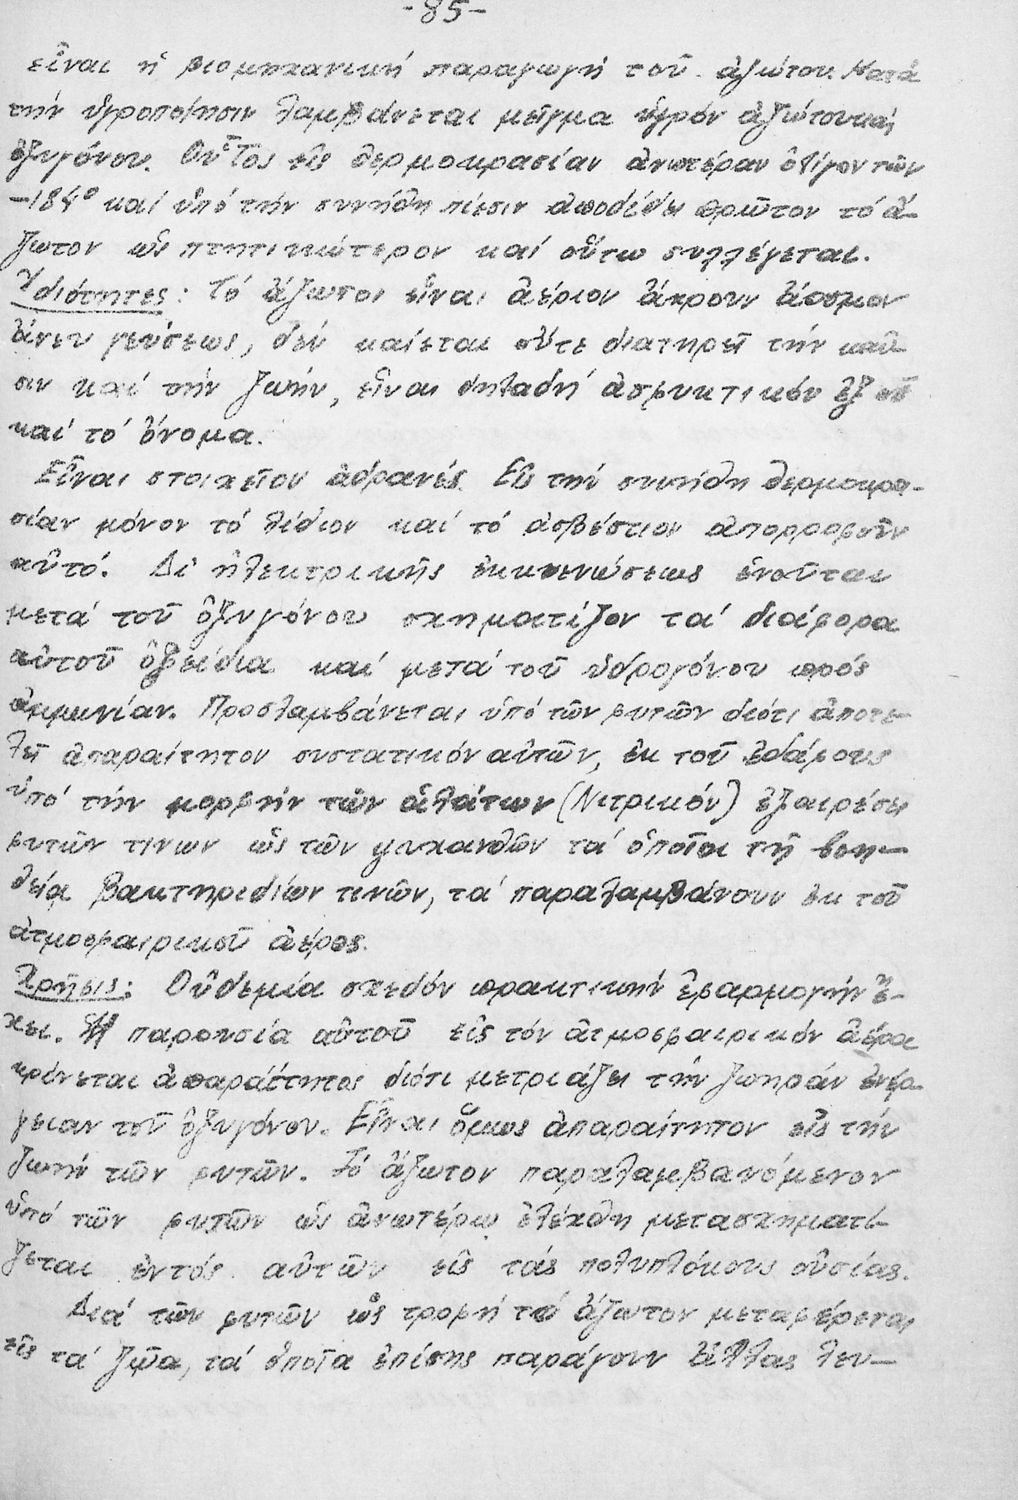 -85-
εἶναι ἡ βιομηχανική παραγωγή τοῦ ἀζώτου. Κατά
τήν ὑγροποίησιν λαμβάνεται μεῖγμα ὑγρόν ἀζώτου καί
ὀξυγόνου. Οὗτος εἰς θερμοκρασίαν ἀνωτέραν ὀλίγον τῶν
-184° καί ὑπό τήν συνήθη πίεσιν ἀποδίδει πρῶτον τό ἄ-
ζωτον ὡς πτητικώτερον καί οὕτω συλλέγεται.
Ἰδιότητες: Τό ἄζωτον εἶναι ἀέριον ἄχρουν ἄοσμον
ἄνευ γεύσεως, δέν καίεται οὔτε διατηρεῖ τήν καῦ-
σιν καί τήν ζωήν, εἶναι δηλαδή ἀσφυκτικόν ἐξ οὗ
καί τό ὄνομα.
Εἶναι στοιχεῖον ἀδρανές. Εἰς τήν συνήθη θερμοκρα-
σίαν μόνον τό λίθιον καί τό ἀσβέστιον ἀπορροφοῦν
αὐτό. Δι' ἠλεκτρικῆς ἐκκενώσεως ἑνοῦται
μετά τοῦ ὀξυγόνου σχηματίζον τά διάφορα
αὐτοῦ ὀξείδια καί μετά τοῦ ὑδρογόνου πρός
ἀμμωνίαν. Προσλαμβάνεται ὑπό τῶν φυτῶν διότι ἀποτε-
λεῖ ἀπαραίτητον συστατικόν αὐτῶν, ἐκ τοῦ ἐδάφους
ὑπό τήν μορφήν τῶν ἁλάτων (Νιτρικόν) ἐξαιρέσει
φυτῶν τινων ὡς τῶν ψυχανθῶν τά ὁποῖα τῇ βοη-
θείᾳ βακτηριδίων τινῶν, τά παραλαμβάνουν ἐκ τοῦ
ἀτμοσφαιρικοῦ ἀέρος.
Χρῆσις: Οὐδεμία σχεδόν πρακτικήν ἐφαρμογήν ἔ-
χει. Ἡ παρουσία αὐτοῦ εἰς τόν ἀτμοσφαιρικόν ἀέρα
κρίνεται ἀπαραίτητος διότι μετριάζει τήν ζωηράν ἐνέρ-
γειαν τοῦ ὀξυγόνου. Εἶναι ὅμως ἀπαραίτητον εἰς τήν
ζωήν τῶν φυτῶν. Τό ἄζωτον παραλαμβανόμενον
ὑπό τῶν φυτῶν ὡς ἀνωτέρω ἐλέχθη μετασχηματί-
ζεται ἐντός αὐτῶν εἰς τάς πολυπλόκους οὐσίας.
Διά τῶν φυτῶν ὡς τροφή τό ἄζωτον μεταφέρεται
εἰς τά ζῷα, τά ὁποῖα ἐπίσης παράγουν ἄλλας λευ-